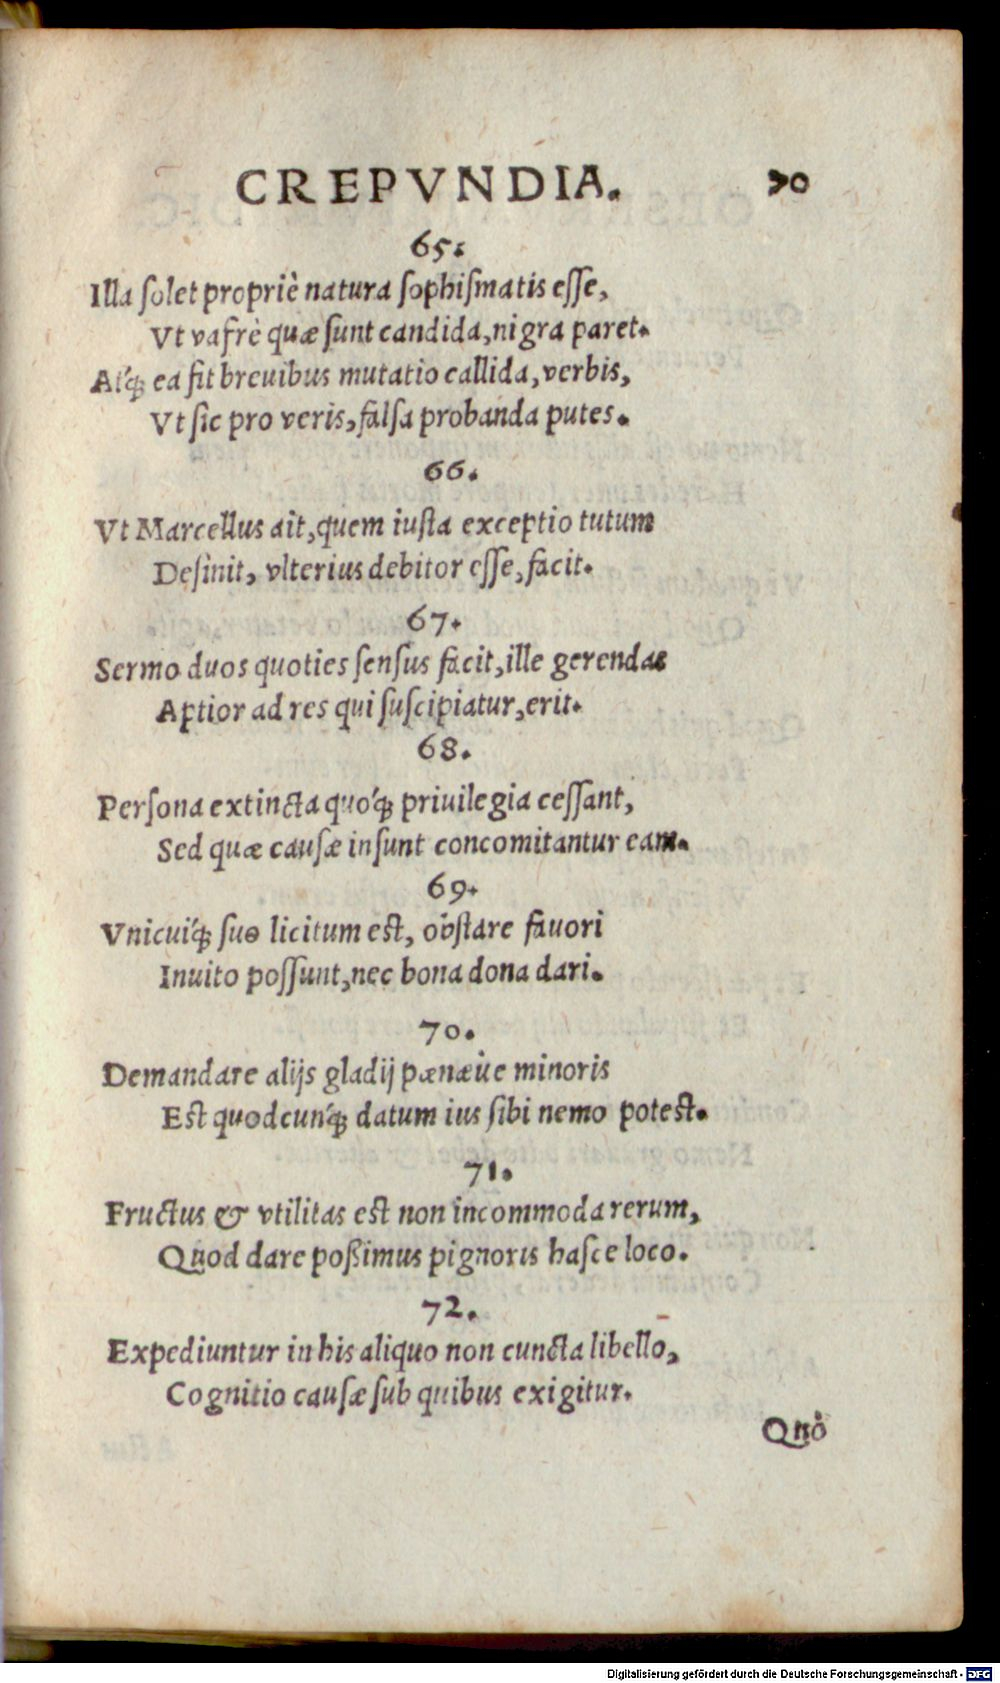 CREPVNDIA. 70
65.
Illa ſolet propriè natura ſophiſmatis eſſe,
Vt vafrè quæ ſunt candida, nigra paret.
Atq́; ea fit breuibus mutatio callida, verbis,
Vt ſic pro veris, falſa probanda putes.
66.
Vt Marcellus ait, quem iuſta exceptio tutum
Deſinit, vlterius debitor eſſe, facit.
67.
Sermo duos quoties ſenſus facit, ille gerendas
Aptior ad res qui ſuſcipiatur, erit.
68.
Perſona extincta quoq́; priuilegia ceſſant,
Sed quæ cauſæ inſunt concomitantur eam.
69.
Vnicuiq́; ſuo licitum est, obſtare fauori
Inuito poſſunt, nec bona dona dari.
70.
Demandare alijs gladij pænæue minoris
Est quodcunq́; datum ius ſibi nemo potest.
71.
Fructus & vtilitas est non incommoda rerum,
Quod dare poßimus pignoris haſce loco.
72.
Expediuntur in his aliquo non cuncta libello,
Cognitio cauſæ ſub quibus exigitur.
Quò
Digitalisierung gefördert durch die Deutsche Forschungsgemeinschaft - DFG